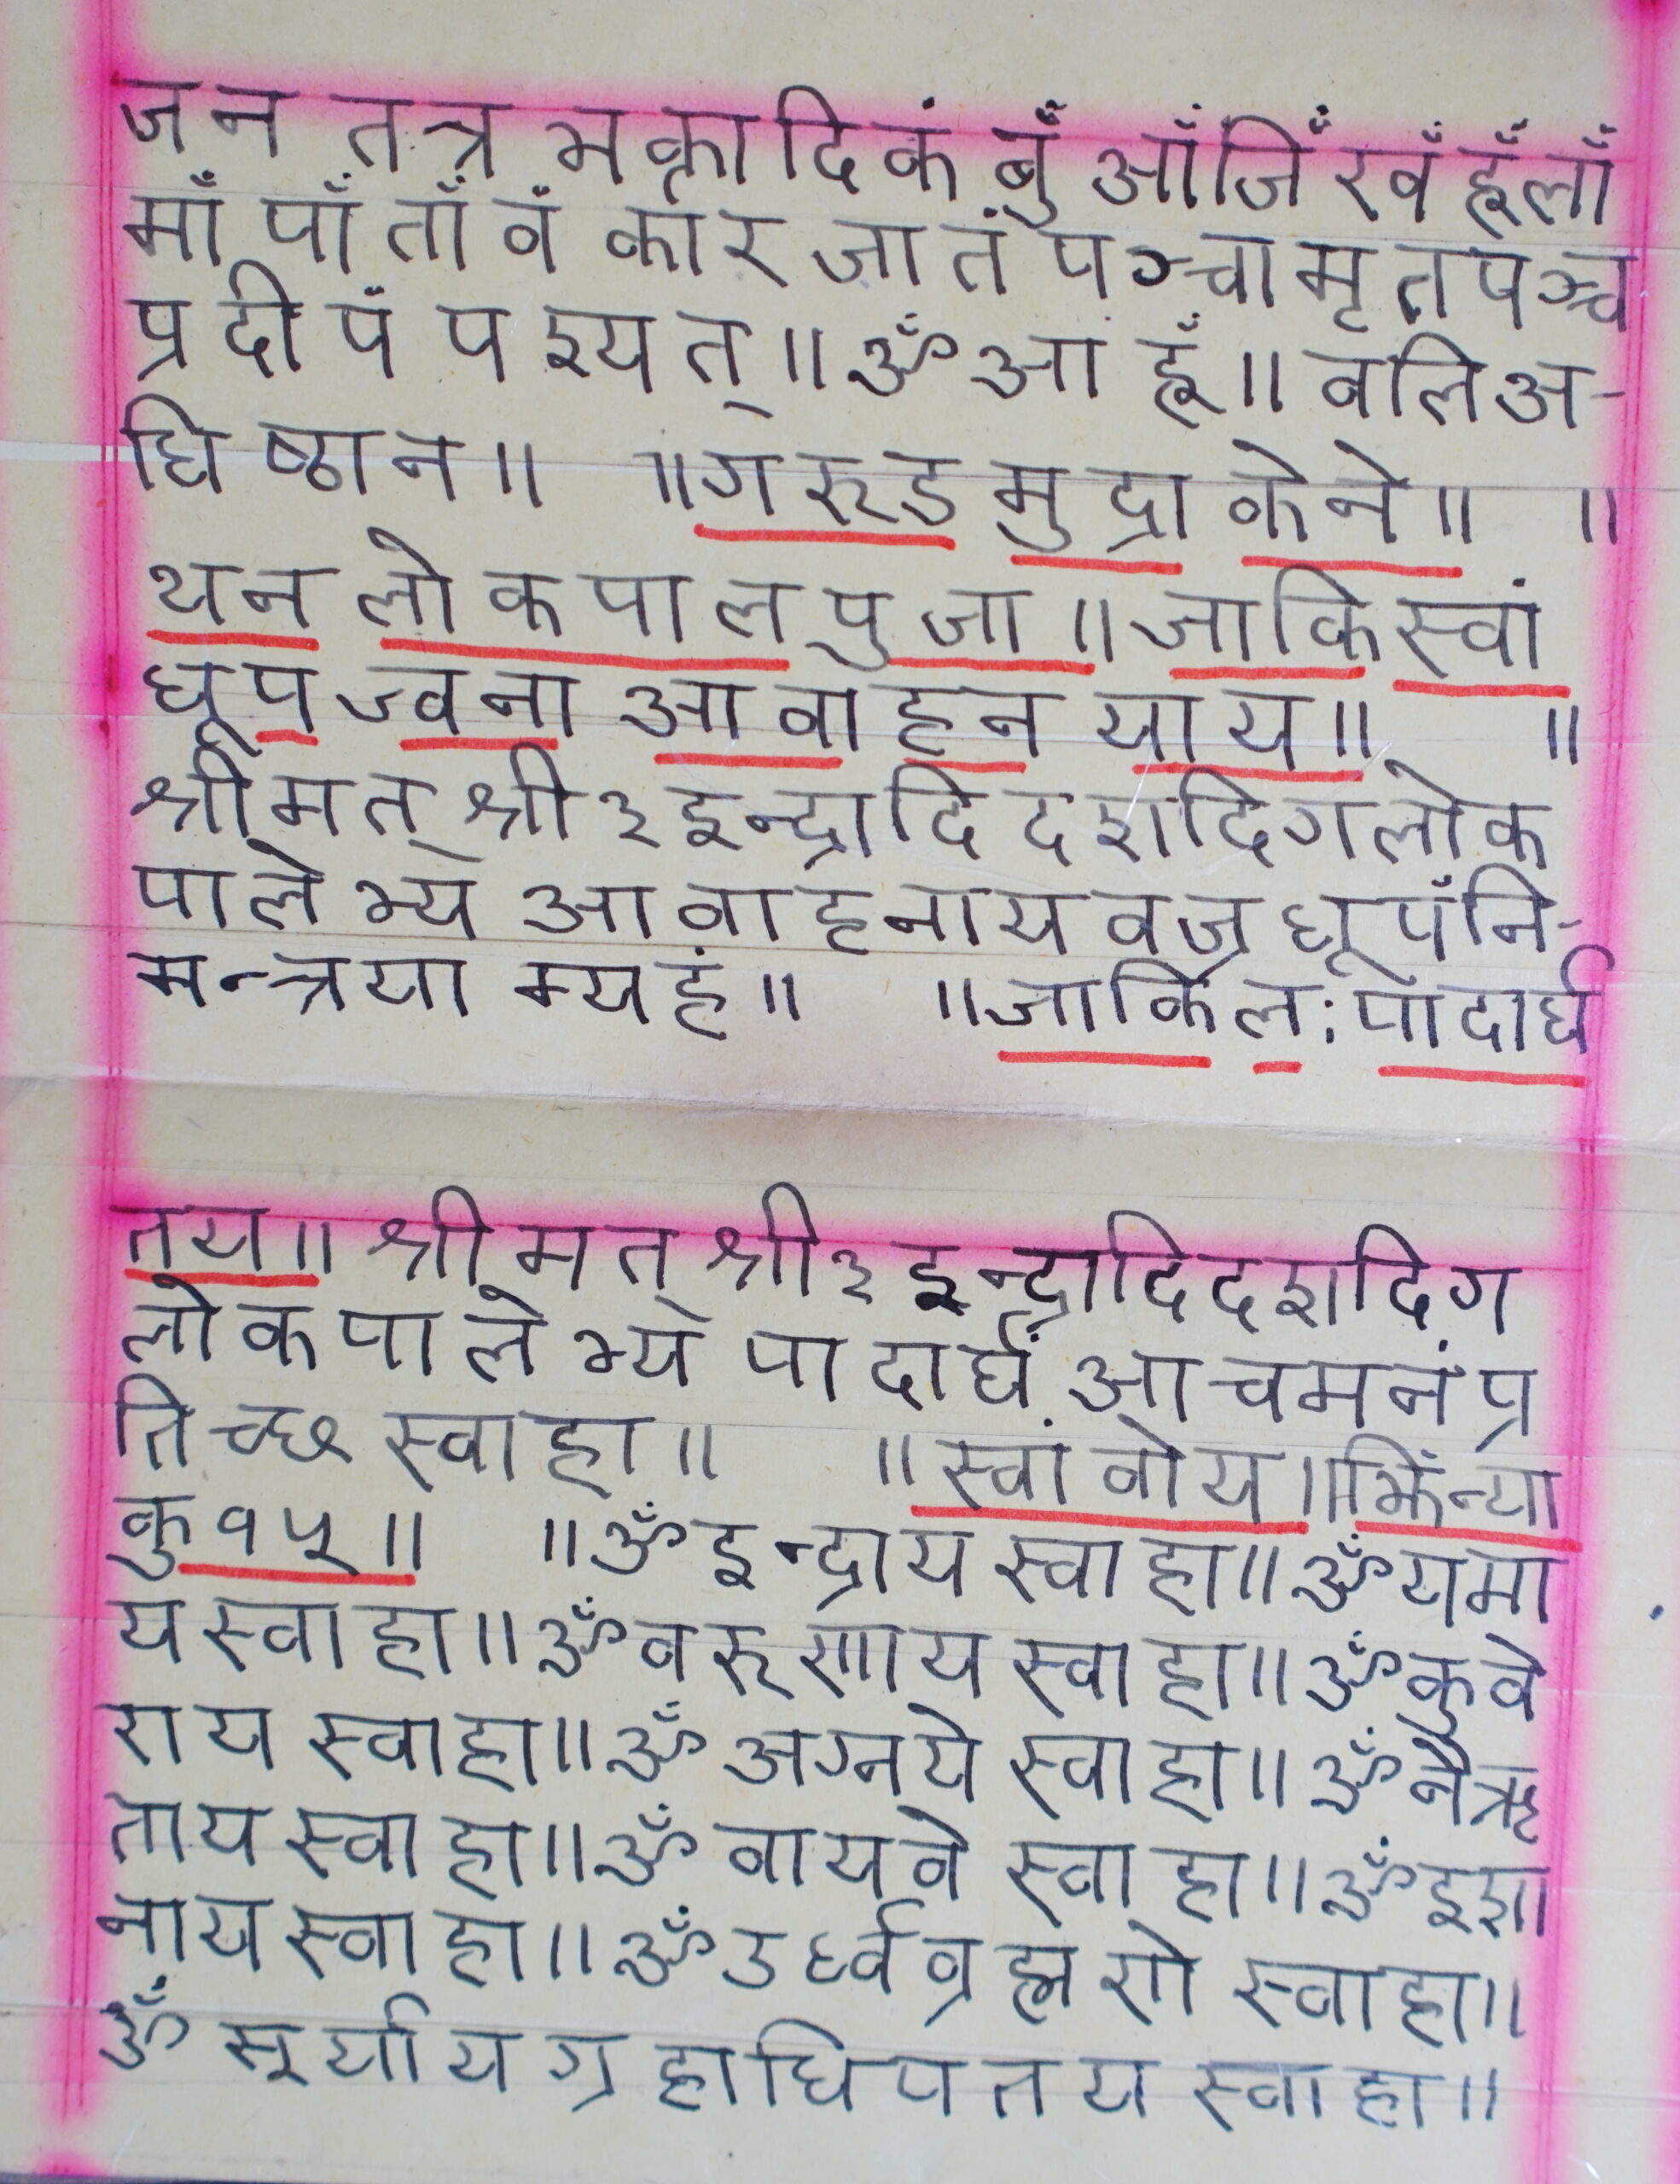 जन तत्र भक्तादिकं बुँ आँजिँ खँ हूँलाँ
माँ पाँ ताँ वं कार जातं पञ्चामृतपञ्च
प्रदीपं पश्यत्॥ॐ आ हूँ॥ वलिअ-
धिष्ठान॥ ॥गरुड मुद्रा केने॥ ॥
थन लोकपाल पुजा॥जाकिस्वां
धूप ज्वना आवाहन याय॥ ॥
श्रीमत् श्री३इन्द्रादि दशदिगलोक
पालेभ्य आवाहनाय वज्रधूपंनि-
मन्त्रयाम्यहं॥ ॥जाकिल:पादार्घ
तय॥ श्रीमत् श्री३इन्द्रादिदशदिग
लोकपालेभ्य पादार्घं आचमनं प्र
तिच्छ स्वाहा॥ ॥स्वां वोय॥झिंन्या
कु१५॥ ॥ॐ इन्द्राय स्वाहा॥ॐ यमा
य स्वाहा॥ॐ वरुणाय स्वाहा॥ॐ कुवे
राय स्वाहा॥ॐ अग्नये स्वाहा॥ॐ नैऋ
ताय स्वाहा॥ॐ वायवे स्वाहा॥ॐ इशा
नाय स्वाहा॥ॐ उर्ध्वव्रह्मणे स्वाहा॥
ॐ सूर्याय ग्रहाधिपतय स्वाहा॥